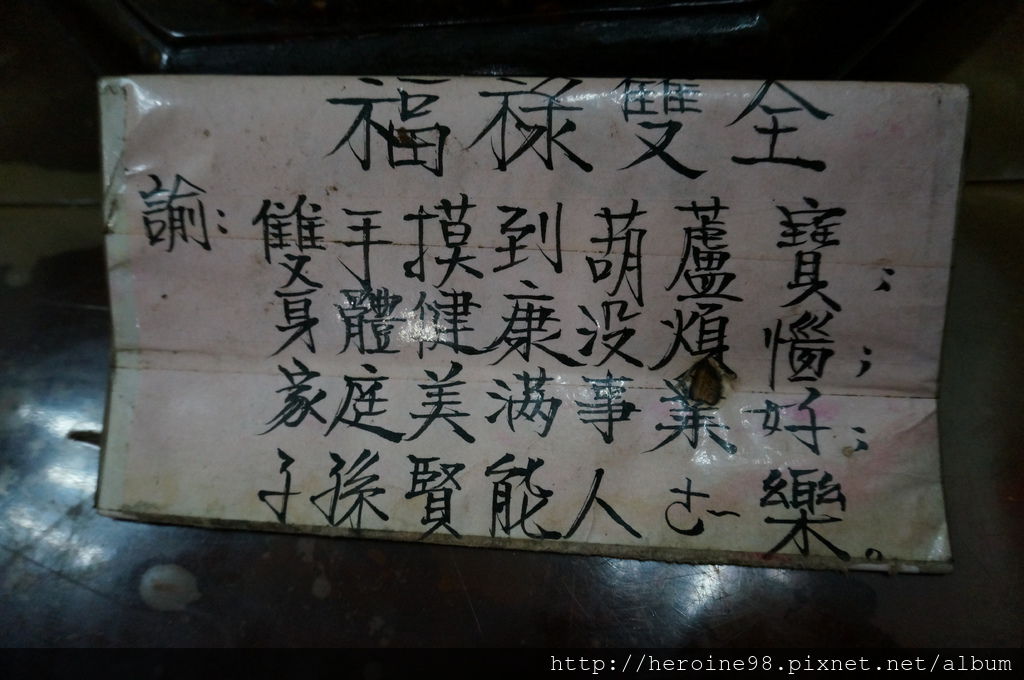 福禄雙全
諭：雙手摸到葫蘆寶；
身體健康没煩惱；
家庭美滿事業好；
子孫賢能人樂。
http://heroine98.pixnet.net/album